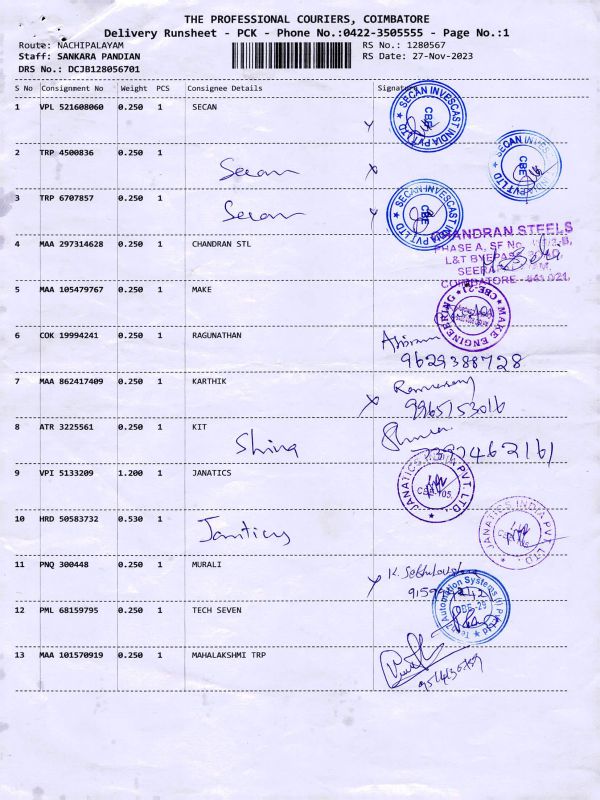 THE PROFESSIONAL COURIERS, COIMBATORE
Delivery Runsheet - PCK - Phone No.:0422-3505555 - Page No.:1
Route: NACHIPALAYAM
RS No.: 1280567
Staff: SANKARA PANDIAN
RS Date: 27-Nov-2023
DRS No.: DCJB128056701
S No Consignment No Weight PCS Consignee Details Signature
1 VPL 521608060 0.250 1 SECAN
SECAN INVESCAST INDIA PVT LTD
CBE
2 TRP 4500836 0.250 1
Secan
SECAN INVES
CBE
3 TRP 6707857 0.250 1
Secan
SECAN INVESCAST INDIA PVT LTD
CBE
4 MAA 297314628 0.250 1 CHANDRAN STL
CHANDRAN STEELS
PHASE A, SF No.
L&T BYEPASS
COIMBATORE - 641 021.
5 MAA 105479767 0.250 1 MAKE
MAKE ENGINEERING
CBE-21
6 COK 19994241 0.250 1 RAGUNATHAN
9629388728
7 MAA 862417409 0.250 1 KARTHIK
9965153016
8 ATR 3225561 0.250 1 KIT
9 VPI 5133209 1.200 1 JANATICS
JANATICS INDIA PVT. LTD.
10 HRD 50583732 0.530 1
JANATICS INDIA PVT. LTD.
11 PNQ 300448 0.250 1 MURALI
12 PML 68159795 0.250 1 TECH SEVEN
Automation Systems (I) Pvt Ltd
13 MAA 101570919 0.250 1 MAHALAKSHMI TRP